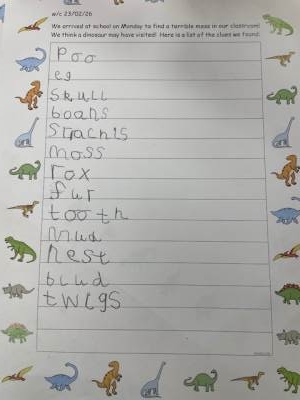 w/c 23/02/26
We arrived at school on Monday to find a terrible mess in our classroom!
We think a dinosaur may have visited! Here is a list of the clues we found:
Poo
eg
Skull
boans
Strachis
Moss
rox
fur
tooth
Mud
nest
blud
twigs